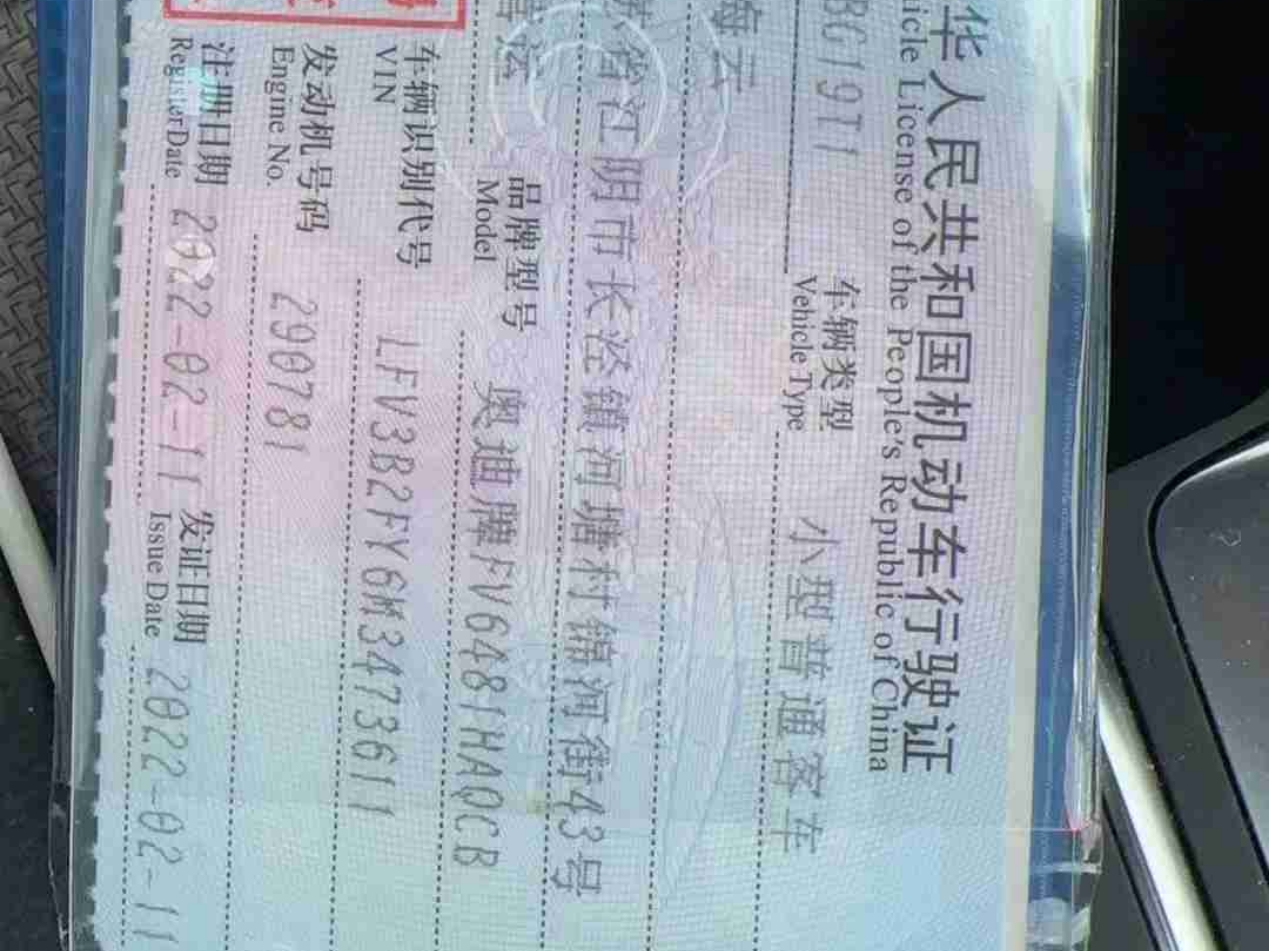 华人民共和国机动车行驶证
icle License of the People's Republic of China
BG19T1 车辆类型 小型普通客车
Vehicle Type
海云
省江阴市长泾镇河塘村锦河街43号
品牌型号 奥迪牌FV6481HAQCB
Model
车辆识别代号 LFV3B2FY6M3473611
VIN
发动机号码 290781
Engine No.
注册日期 2022-02-11 发证日期 2022-02-11
Register Date Issue Date